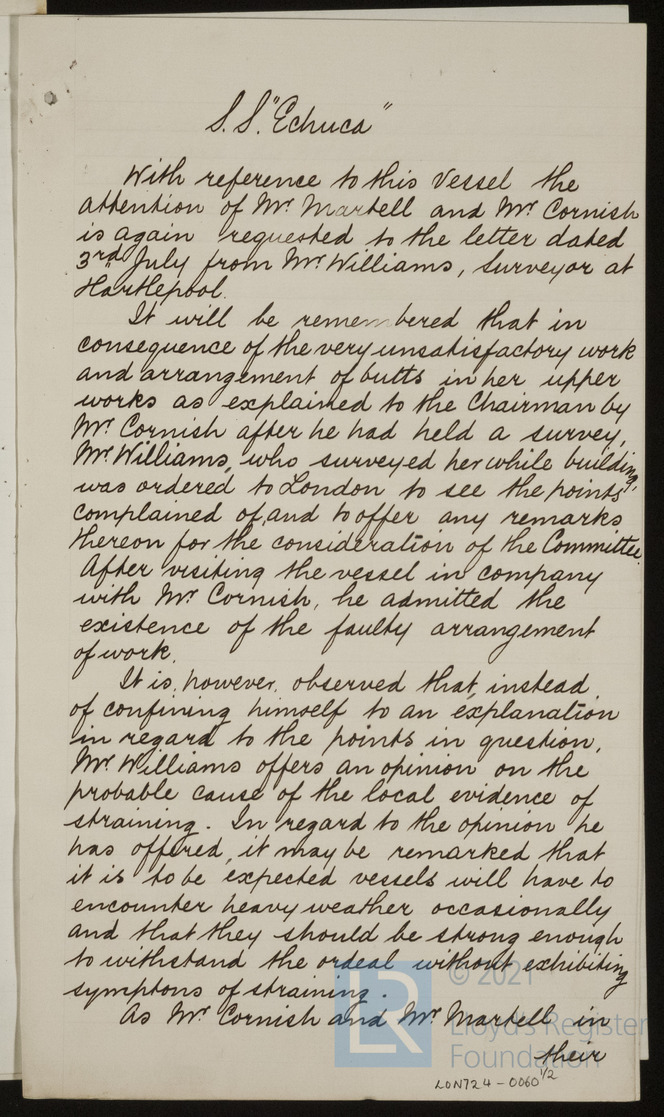 S.S. "Echuca"
With reference to this Vessel the
attention of Mr. Martell and Mr. Cornish
is again requested to the letter dated
3rd July from Mr. Williams, Surveyor at
Hartlepool.
It will be remembered that in
consequence of the very unsatisfactory work
and arrangement of butts in her upper
works as explained to the Chairman by
Mr. Cornish after he had held a survey,
Mr. Williams, who surveyed her while building,
was ordered to London to see the points
complained of, and to offer any remarks
thereon for the consideration of the Committee.
After visiting the vessel in company
with Mr. Cornish, he admitted the
existence of the faulty arrangement
of work.
It is, however, observed that, instead
of confining himself to an explanation
in regard to the points in question,
Mr. Williams offers an opinion on the
probable cause of the local evidence of
straining. In regard to the opinion he
has offered, it may be remarked that
it is to be expected vessels will have to
encounter heavy weather occasionally
and that they should be strong enough
to withstand the ordeal without exhibiting
symptons of straining.
As Mr. Cornish and Mr. Martell in
their
LR
© 2021
Lloyd's Register
Foundation
LON724-0060 1/2